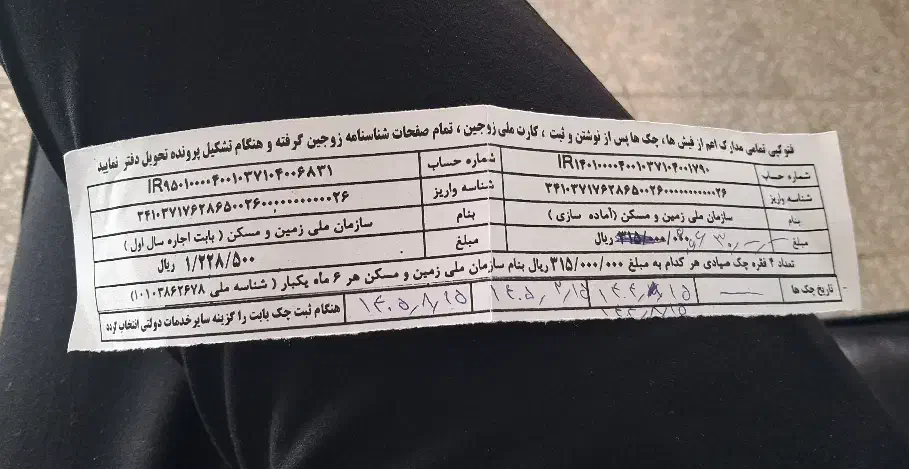 فتوکپی تمامی مدارک اعم از فیش ها، چک ها پس از نوشتن و ثبت ، کارت ملی زوجین ، تمام صفحات شناسنامه زوجین گرفته و هنگام تشکیل پرونده تحویل دفتر نمایید
شماره حساب IR۱۴۰۱۰۰۰۰۴۰۰۱۰۳۷۱۰۴۰۰۱۷۹۰ شماره حساب IR۹۵۰۱۰۰۰۰۴۰۰۱۰۳۷۱۰۴۰۰۶۸۳۱
شناسه واریز ۳۴۱۰۳۷۱۷۶۲۸۶۵۰۰۲۶۰۰۰۰۰۰۰۰۰۰۲۶ شناسه واریز ۳۴۱۰۳۷۱۷۶۲۸۶۵۰۰۲۶۰۰۰۰۰۰۰۰۰۰۲۶
بنام سازمان ملی زمین و مسکن (آماده سازی ) بنام سازمان ملی زمین و مسکن ( بابت اجاره سال اول )
مبلغ ریال مبلغ ۱/۲۲۸/۵۰۰ ریال
تعداد ۴ فقره چک صیادی هر کدام به مبلغ ۳۱۵/۰۰۰/۰۰۰ ریال بنام سازمان ملی زمین و مسکن هر ۶ ماه یکبار ( شناسه ملی ۱۰۱۰۳۸۶۲۶۷۸)
تاریخ چک ها ۱۴۰۵/۲/۱۵ ۱۴۰۵/۸/۱۵ هنگام ثبت چک بابت را گزینه سایر خدمات دولتی انتخاب گردد